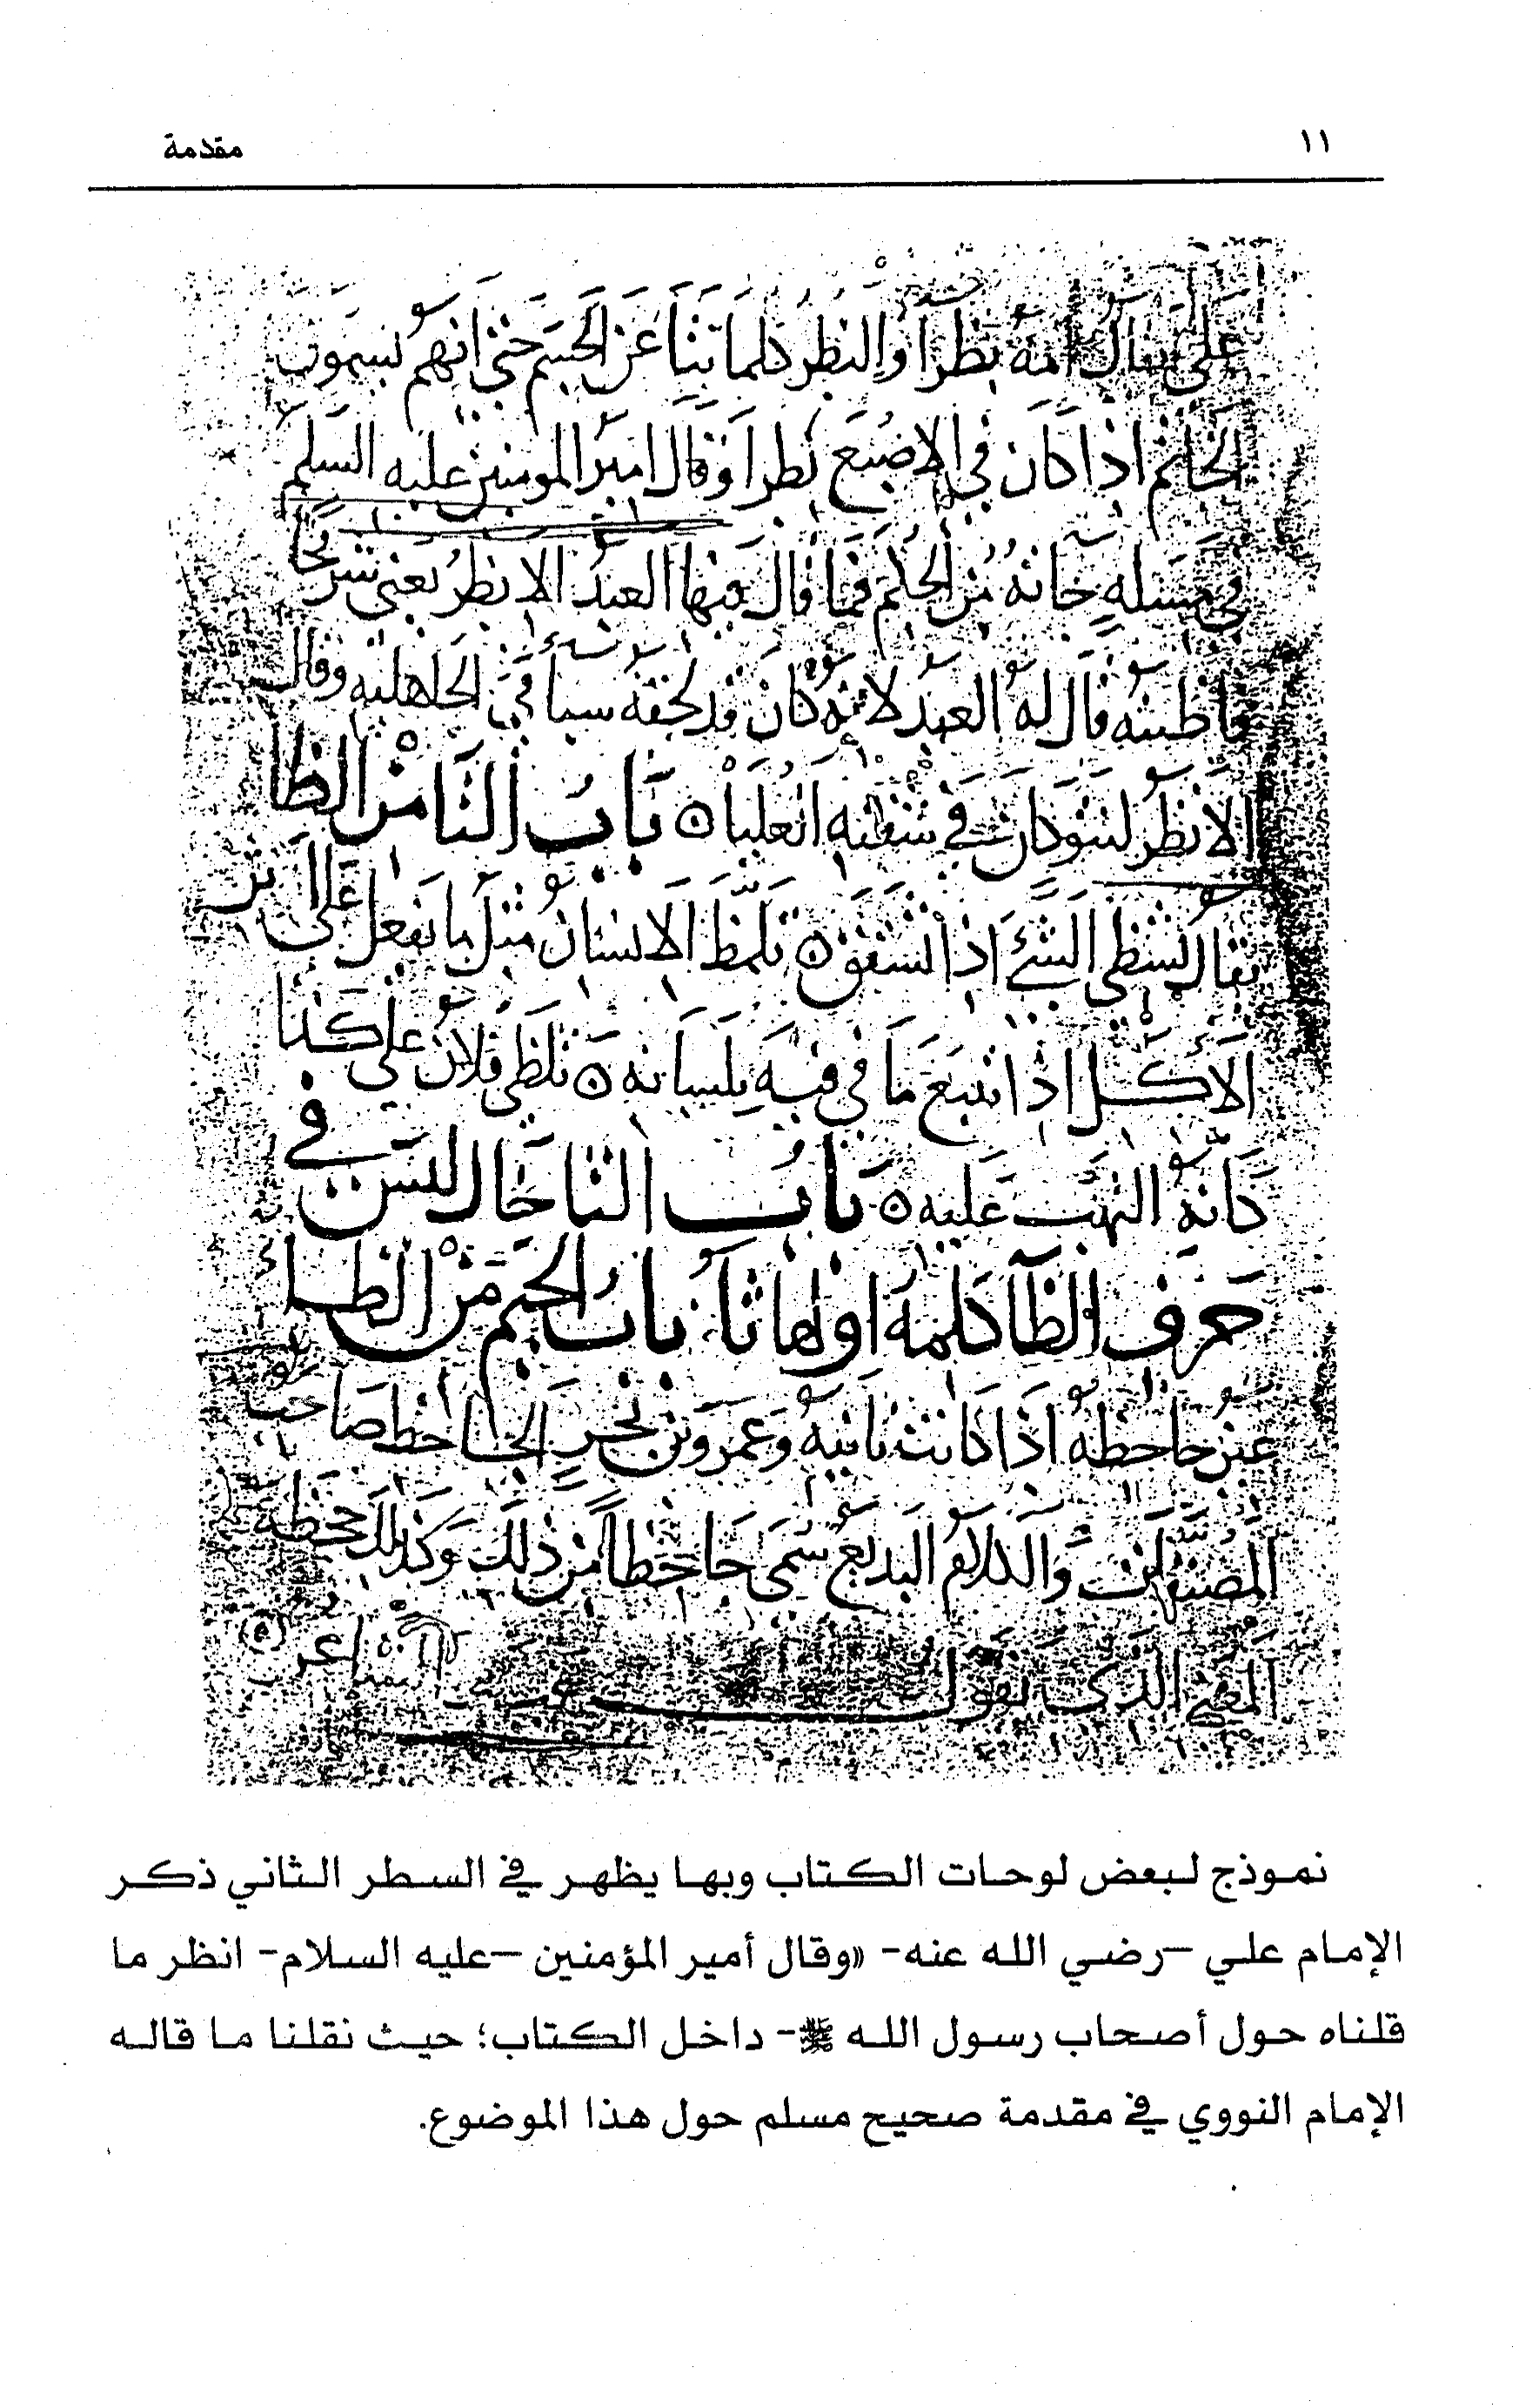 ١١ مقدمة
امة بظرا والبظر كلما نتا عن الجسم حتى انهم يسمون
الخاتم اذا كان في الاصبع بظرا وقال امير المومنين عليه السلم
في مسله خاثه من الحكم فما قال فيها العبد الابظر يعني شريحا
قال له العبد لانه كان قد لحقه سبا في الجاهليه وقال
الابظر لنتو كان في شفته العليا ه باب التا من الظا
يقال تشظى الشئ اذا تشقق ه تلمظ الانسان مثل ما يفعل على اثر
الاكل اذا تتبع ما في فيه بلسانه ه تلظى فلان على كذا
كانه التهب عليه ه باب الثا خال ليس في
حرف الظا كلمة اولها ثا. باب الجيم من الظاء
عين جاحظه اذا كانت ناتيه وعمرو بن بحر الجاحظ صاحب
المصنفات والكلام البديع سمى جاحظا من ذلك وكذلك جحظه
المغني الذي يقول الشاعر
نموذج لبعض لوحات الكتاب وبها يظهر في السطر الثاني ذكر
الإمام علي –رضي الله عنه– «وقال أمير المؤمنين –عليه السلام– انظر ما
قلناه حول أصحاب رسول الله ﷺ– داخل الكتاب؛ حيث نقلنا ما قاله
الإمام النووي في مقدمة صحيح مسلم حول هذا الموضوع.